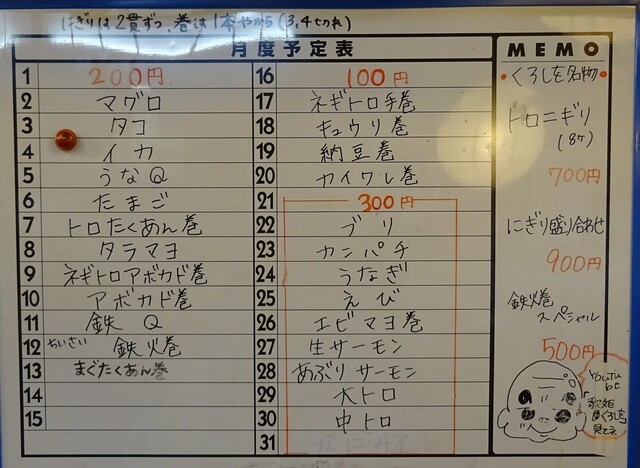 にぎりは2貫ずつ、巻は1本やから(3,4切れ)
月度予定表
1 200円
2 マグロ
3 タコ
4 イカ
5 うなQ
6 たまご
7 トロたくあん巻
8 タラマヨ
9 ネギトロアボカド巻
10 アボカド巻
11 鉄Q
12 ちいさい 鉄火巻
13 まぐたくあん巻
14
15
16 100円
17 ネギトロ手巻
18 キュウリ巻
19 納豆巻
20 カイワレ巻
21 300円
22 ブリ
23 カンパチ
24 うなぎ
25 えび
26 エビマヨ巻
27 生サーモン
28 あぶりサーモン
29 大トロ
30 中トロ
31
MEMO
くろしを名物
トロニギリ
(8ヶ)
700円
にぎり盛り合わせ
900円
鉄火巻
スペシャル
500円
YouTu
be
歌姫
見てネ